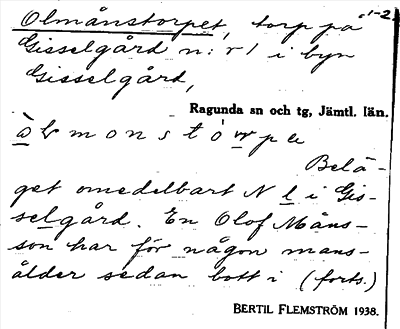 Olmånstorpet, torp på 1-2.
Gisselgård n:r 1 i byn
Gisselgård,
Ragunda sn och tg, Jämtl. län.
Belä-
get omedelbart N l i Gis-
selgård. En Olof Måns-
son har för någon mans-
ålder sedan bott i (forts.)
BERTIL FLEMSTRÖM 1938.